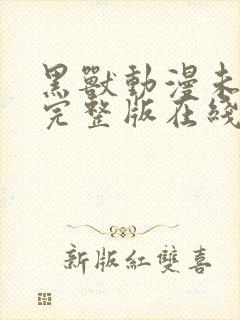 黑獸動漫未
完整版在綫
新版紅雙喜